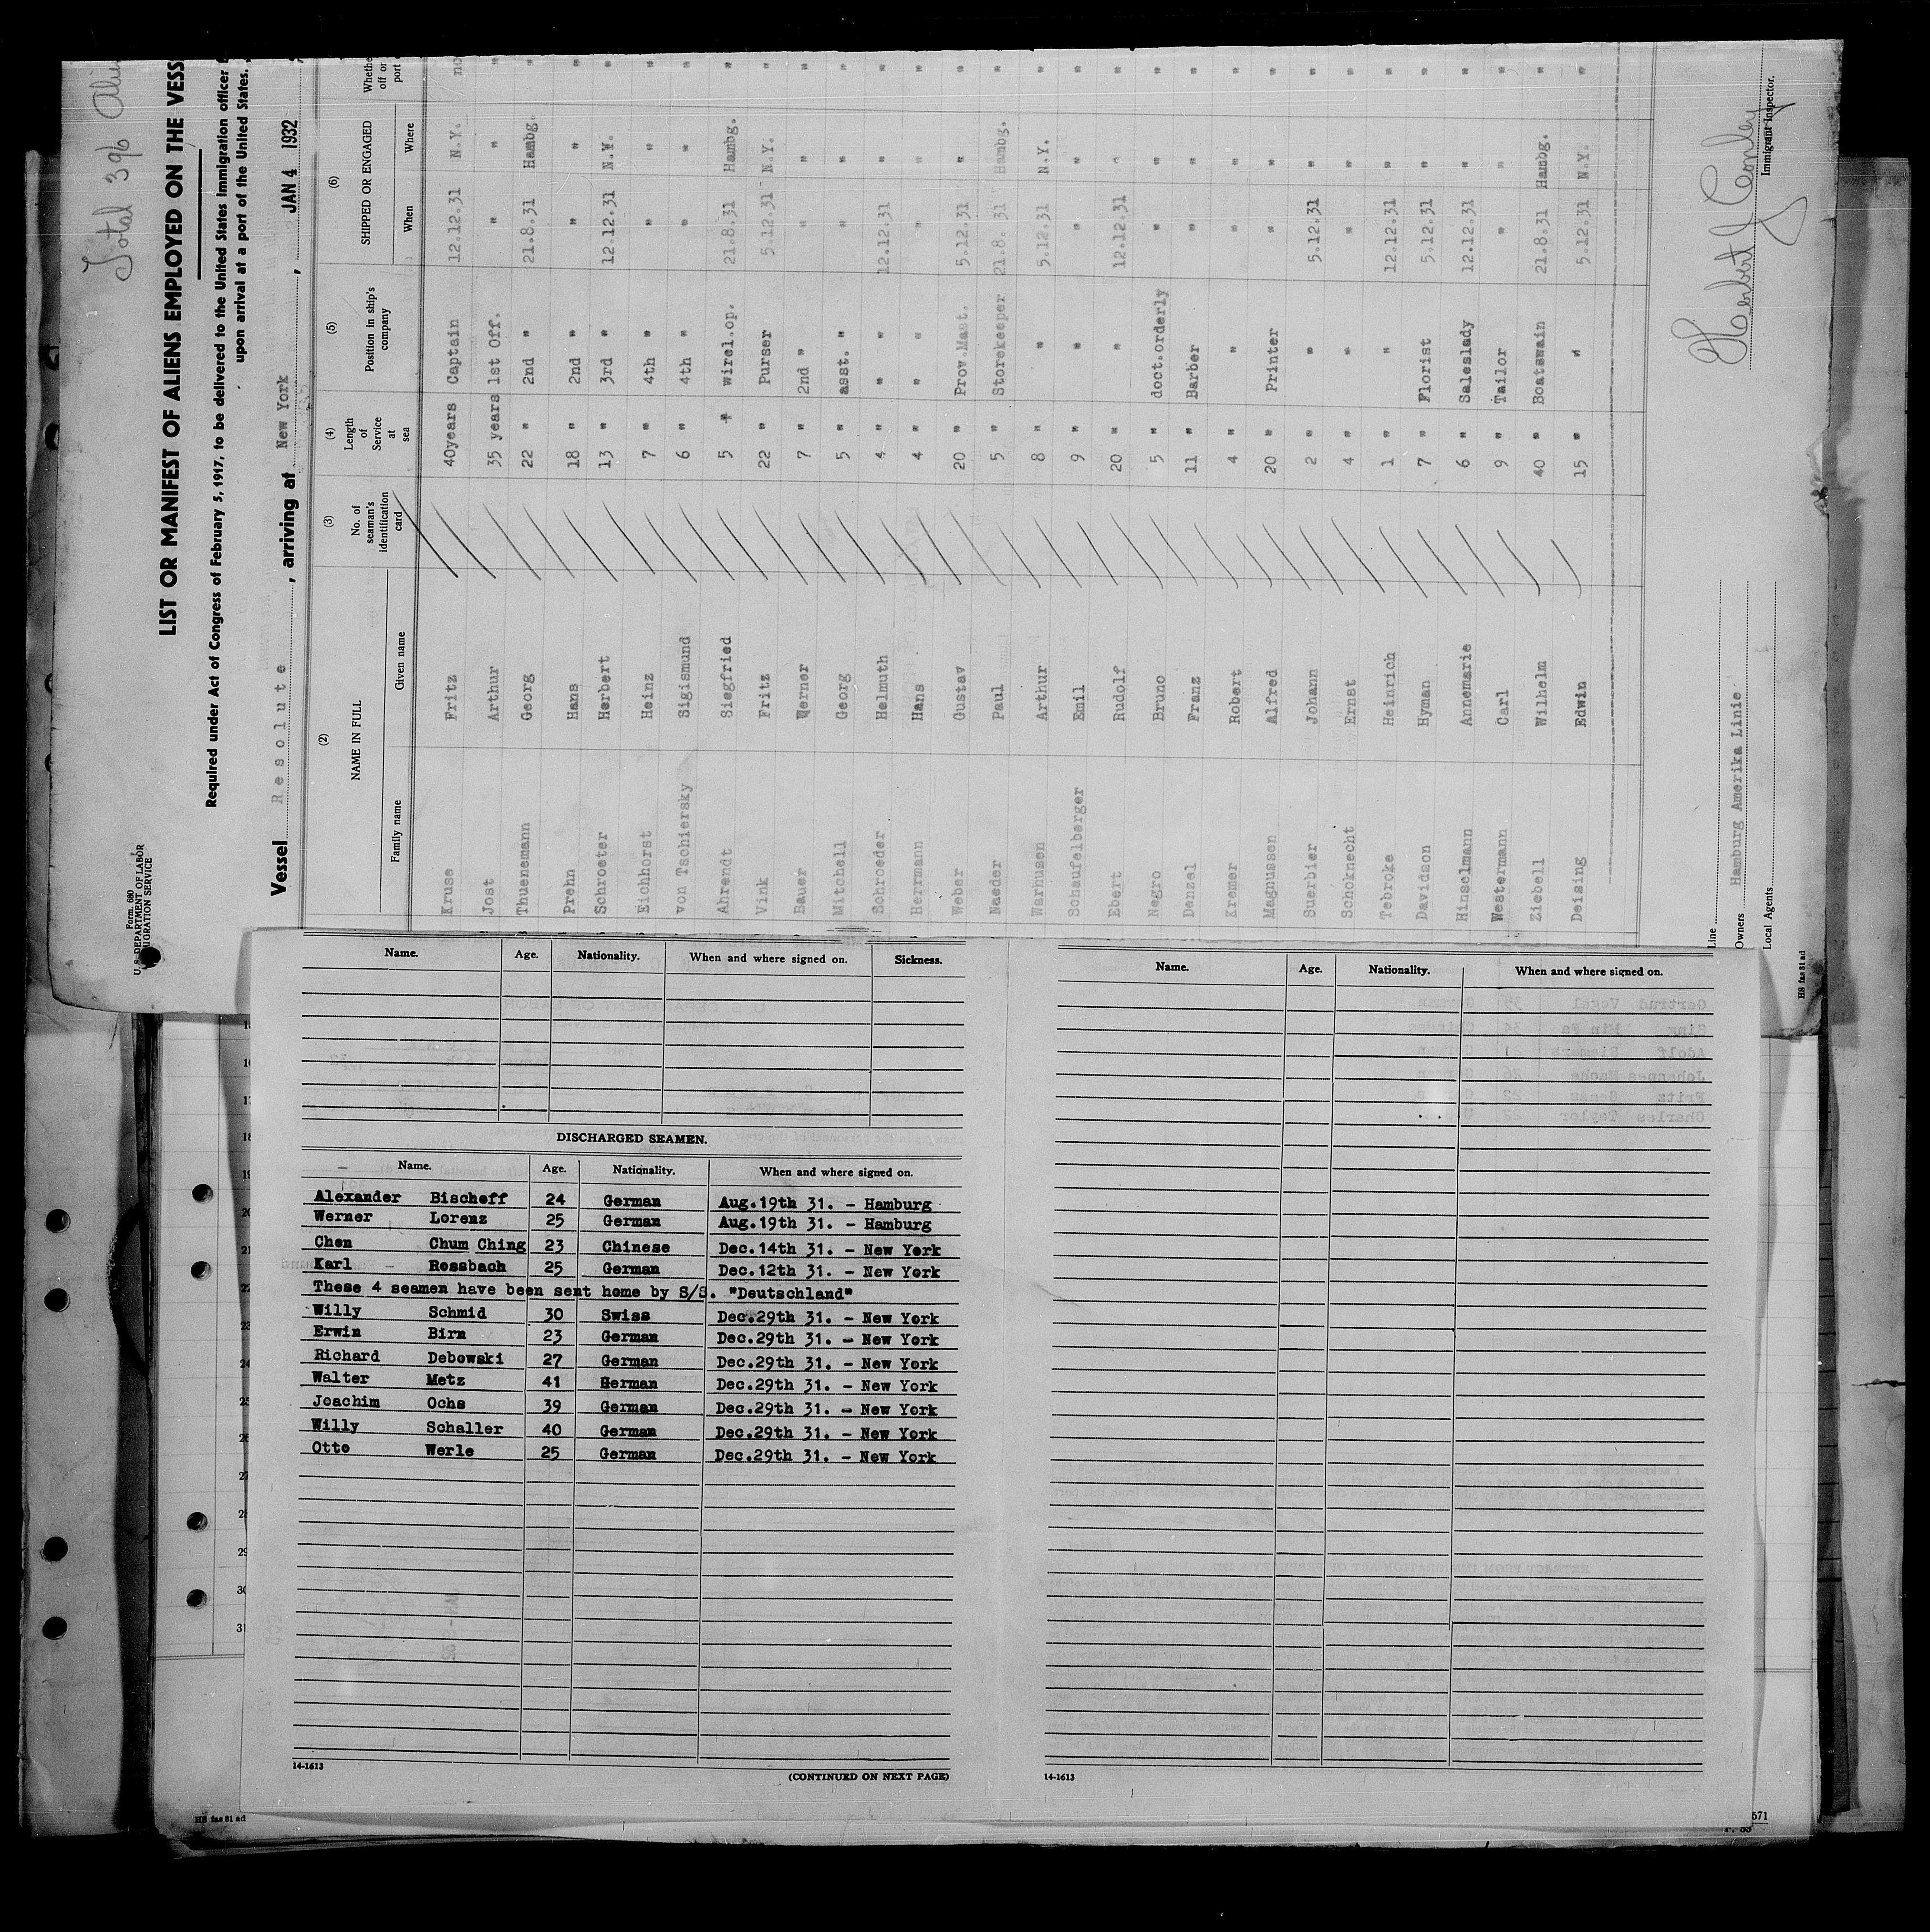 Total 396 Alie
LIST OR MANIFEST OF ALIENS EMPLOYED ON THE VESS
Required under Act of Congress of February 5, 1917, to be delivered to the United States immigration officer
upon arrival at a port of the United States.
Form 680
U. S. DEPARTMENT OF LABOR
IMMIGRATION SERVICE
Vessel Resolute, arriving at New York, JAN 4 1932
(2) (3) (4) (5) (6)
NAME IN FULL No. of seaman's identification card Length of Service at sea Position in ship's company SHIPPED OR ENGAGED Whethe off or port
Family name Given name When Where
Kruse Fritz 40years Captain 12.12.31 N.Y. no
Jost Arthur 35 years 1st Off. " " "
Thuenemann Georg 22 " 2nd " 21.8.31 Hambg. "
Prehn Hans 18 " 2nd " " " "
Schroeter Herbert 13 " 3rd " 12.12.31 N.Y. "
Eichhorst Heinz 7 " 4th " " " "
von Tschiersky Sigismund 6 " 4th " " " "
Ahrendt Siegfried 5 " wirel.op. 21.8.31 Hambg. "
Vink Fritz 22 " Purser 5.12.31 N.Y. "
Bauer Werner 7 " 2nd " " " "
Mitchell Georg 5 " asst. " " " "
Schroeder Helmuth 4 " " 12.12.31 " "
Herrmann Hans 4 " " " " "
Weber Gustav 20 " Prov.Mast. 5.12.31 " "
Naeder Paul 5 " Storekeeper 21.8.31 Hambg. "
Warhusen Arthur 8 " " 5.12.31 N.Y. "
Schaufelberger Emil 9 " " " " "
Ebert Rudolf 20 " " 12.12.31 " "
Negro Bruno 5 " doct.orderly " " "
Danzel Franz 11 " Barber " " "
Kremer Robert 4 " " " " "
Magnussen Alfred 20 " Printer " " "
Suerbier Johann 2 " " 5.12.31 " "
Schoknecht Ernst 4 " " " " "
Tebroke Heinrich 1 " " 12.12.31 " "
Davidson Hyman 7 " Florist 5.12.31 " "
Hinselmann Annemarie 6 " Saleslady 12.12.31 " "
Westermann Carl 9 " Tailor " " "
Ziebell Wilhelm 40 " Boatswain 21.8.31 Hambg. "
Deising Edwin 15 " " 5.12.31 N.Y. "
Line
Owners Hamburg Amerika Linie
Local Agents
Herbert J Conley
Immigrant Inspector.
H8 fas 31 ad
Name. Age. Nationality. When and where signed on. Sickness.
DISCHARGED SEAMEN.
Name. Age. Nationality. When and where signed on.
Alexander Bischoff 24 German Aug.19th 31. - Hamburg
Werner Lorenz 25 German Aug.19th 31. - Hamburg
Chen Chum Ching 23 Chinese Dec.14th 31. - New York
Karl Rossbach 25 German Dec.12th 31. - New York
These 4 seamen have been sent home by S/S. "Deutschland"
Willy Schmid 30 Swiss Dec.29th 31. - New York
Erwin Birn 23 German Dec.29th 31. - New York
Richard Debowski 27 German Dec.29th 31. - New York
Walter Metz 41 German Dec.29th 31. - New York
Joachim Ochs 39 German Dec.29th 31. - New York
Willy Schaller 40 German Dec.29th 31. - New York
Otto Werle 25 German Dec.29th 31. - New York
14-1613
(CONTINUED ON NEXT PAGE)
Name. Age. Nationality. When and where signed on.
14-1613
18
19
20
21
22
23
24
25
26
27
28
29
30
31
H8 fas 31 ad
571